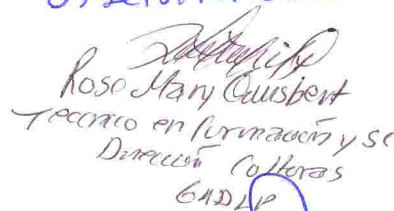 Rose Mary Quisbert
Tecnico en formación y se
Dirección Culturas
GADLP